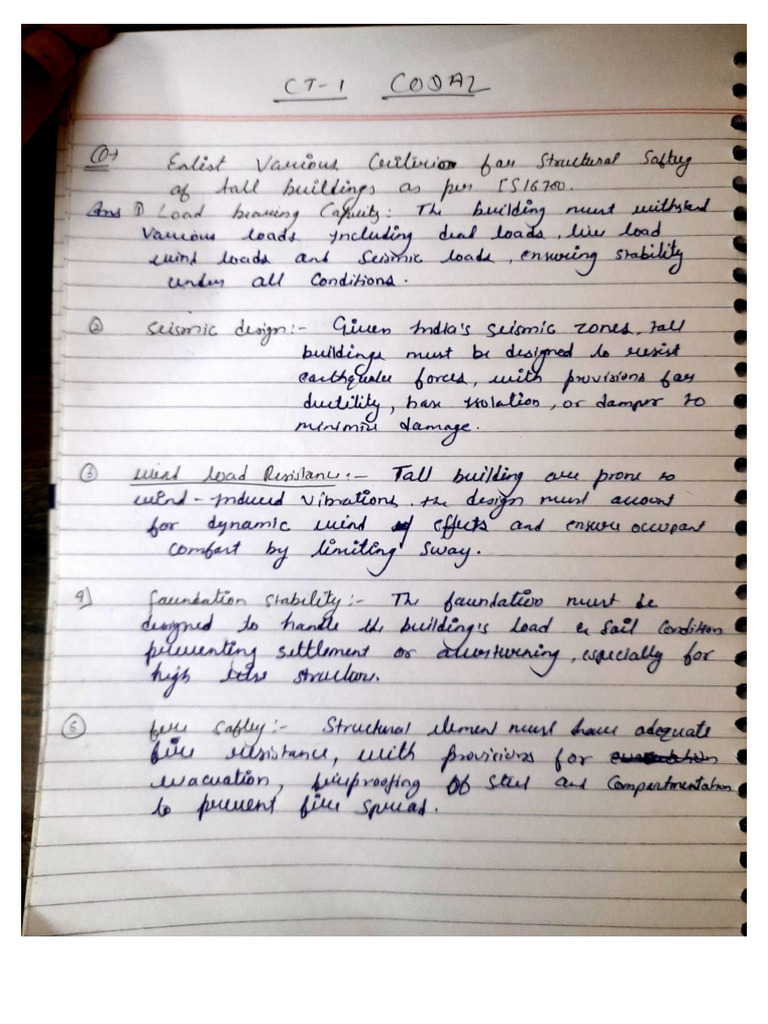 CT-1 CODAL
Q→ Enlist Various Criterion for Structural Saftey
of tall buildings as per IS 16700.
Ans ① Load bearing Capacity: The building must withstand
Various loads including dead loads, live load
wind loads and seismic loads, ensuring stability
under all Conditions.
② Seismic design:- Given India's seismic zones, tall
buildings must be designed to resist
earthquake forces, with provisions for
ductility, base isolation, or damper to
minimize damage.
③ wind load Resistance:- Tall building are prone to
wind-induced Vibrations. the design must account
for dynamic wind effects and ensure occupant
comfort by limiting sway.
4) foundation stability:- The foundation must be
designed to handle the building's load & Soil Condition
preventing settlement or overturning, especially for
high rise structure.
⑤ fire Saftey:- Structural element must have adequate
fire resistance, with provisions for
evacuation, fireproofing of steel and Compartmentation
to prevent fire spread.